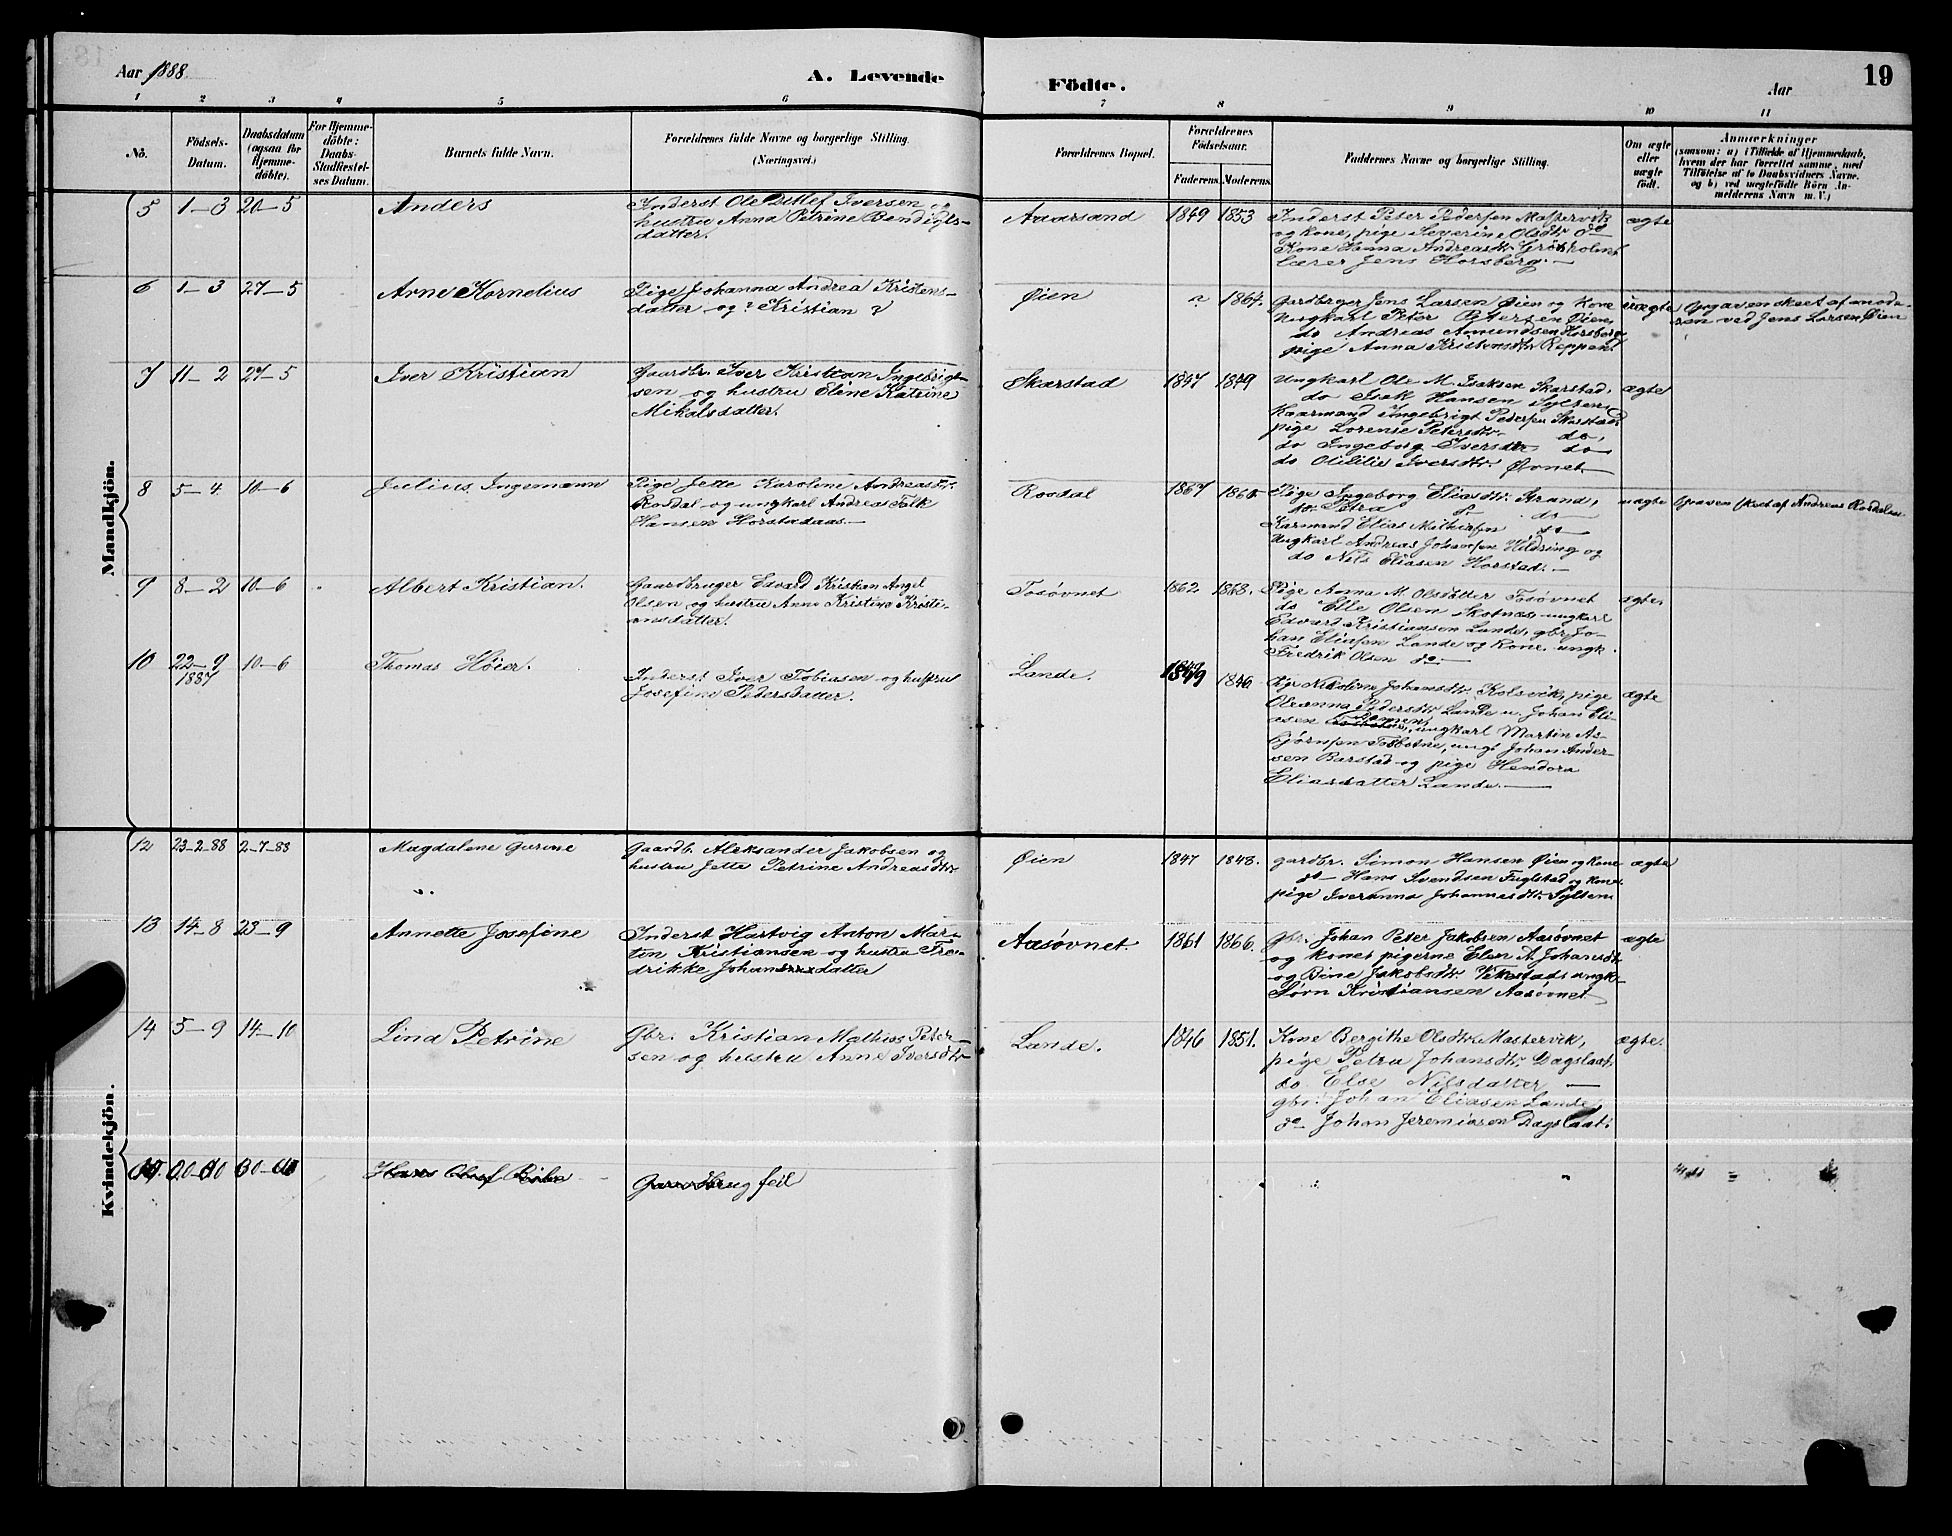 Aar 1888.
A. Levende
Födte.
Aar
19
1 2 3 4 5 6 7 8 9 10 11
No.
Födsels-Datum.
Daabsdatum (ogsaa for Hjemme-döbte).
For Hjemme-döbte: Daabs-Stadfæstel-ses Datum.
Barnets fulde Navn.
Forældrenes fulde Navne og borgerlige Stilling.
(Næringsvei.)
Forældrenes Bopæl.
Forældrenes Födselsaar.
Faderens. Moderens.
Faddernes Navne og borgerlige Stilling.
Om ægte eller uægte födt.
Anmærkninger
(saasom: a) i Tilfælde af Hjemmedaab,
hvem der har forrettet samme, med
Tilföielse af to Daabsvidners Navne,
og b) ved uægtefödte Börn An-
melderens Navn m. V.)
Mandkjön.
5 1-3 20-5 Anders
Inderst Ole Ditlef Iversen og
hustru Anna Petrine Bendigts-
datter.
Aaarsand 1849 1853
Inderst Peter Pedersen Mastervik
og kone, pige Severine Olsdtr do
Kone Hanna Andreasdtr Grötholmt
lærer Jens Horsberg. —
ægte
6 1-3 27-5 Arne Kornelius
Pige Johanna Andrea Kristens-
datter og ? Kristian ?
Øien ? 1864.
Gardbrger Jens Larsen Øien og Kone
Ungkarl Peter Petersen Øien,
do Andreas Amundsen Horsberg
pige Anna Kristensdtr Reppen.
uægte
Opgaven skeet af mode-
ren ved Jens Larsen Øien
7 11-2 27-5 Iver Kristian
Gaardbr. Iver Kristian Ingebrigt-
sen og hustru Eline Katrine
Mikalsdatter.
Skarstad 1847 1849
Ungkarl Ole M. Isaksen Skarstad,
do Isak Hansen Sylten,
Kaarmand Ingebrigt Pedersen Skarstad
pige Lorense Petersdtr. do,
do Ingeborg Iversdtr do
do Olilie Iversdtr. Øvnet —
ægte
8 5-4 10-6 Julius Ingemann
Pige Jette Karoline Andreasdtr.
Rosdal og ungkarl Andreas Falk
Hansen Horstadaas. —
Rosdal 1867
Pige Ingeborg Eliasdtr. Strand,
do Petra do
Karmand Elias Mathiasen do
Ungkarl Andreas Johansen Hildring og
do Nils Eliasen Horstad. —
uægte
Opaven skeet af Andreas Rosdalen
9 8-2 10-6 Albert Kristian.
Gaardbruger Edvard Kristian Angel
Olsen og hustru Anne Kristine Kristi-
ansdatter.
Tosøvnet 1862 1868.
Pige Anna M. Olsdatter Tosøvnet
do Elle Olsen Skotnæs, ungkarl
Edvard Kristiansen Lande, gbr. Jo-
han Eliasen Lande og Kone, ungk.
Fredrik Olsen do. —
ægte.
10 22-9 1887 10-6 Thomas Høier.
Inderst Iver Tobiasen og hustru
Josefine Pedersdatter.
Lande. 1849 1846
Pige Nikoline Johansdtr. Kolsvik, pige
Oleanna Pedersdtr Lande u. Johan Eli-
asen Lomen, ungkarl Martin As-
bjørnsen Tosbotne, ungk Johan Ander-
sen Barstad og pige Hendora
Eliasdatter Lande. —
ægte
Kvindekjön.
12 23-2-88 2-7-88 Magdalene Gurine
Gaardb. Aleksander Jakobsen og
hustru Jette Petrine Andreasdtr
Øien 1847 1848.
gardbr. Simon Hansen Øien og Kone
do — Hans Svendsen Fuglstad og kone.
pige Iveranna Johannesdtr. Sylten
ægte
13 14-8 23-9 Annette Josefine
Inderst Hartvig Anton Mar-
tin Kristiansen og hustru Fre-
drikke Johansdatter
Aasøvnet. 1861 1866.
Gbr. Johan Peter Jakobsen Aasøvnet
og kone, pigerne Elen A. Johansdtr
og Bine Jakobsdtr. Vikestad, ungk-
Sørn Kristiansen Aasøvnet
ægte
14 5-9 14-10 Lina Petrine
Gbr. Kristian Mathias Peter-
sen og hustru Anne Iversdtr
Lande. 1846 1851.
Kone Bergithe Olsdtr. Mastervik,
pige Petra Johansdtr. Dagslaat,
do Else Nilsdatter —
gbr. Johan Eliasen Lande,
do Johan Jeremiasen Dagslaat.
ægte.
Hans Olaf
Gaardbrug feil